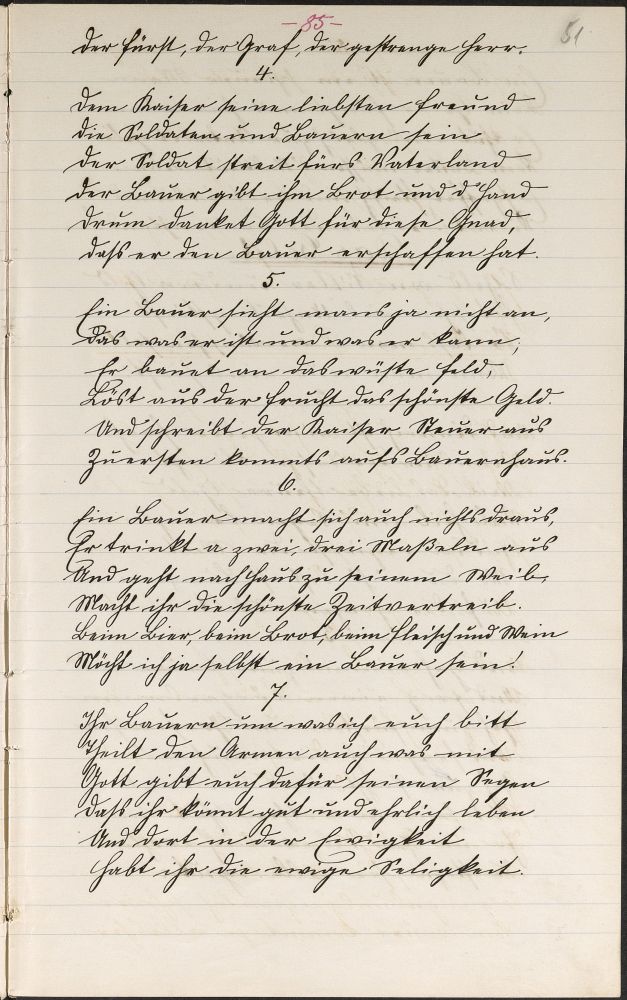 -85-
51
Der Fürst, der Graf, der gestrenge Herr.
4.
Dem Kaiser seine liebsten Freund
Die Soldaten und Bauern sein
Der Soldat streit fürs Vaterland
Der Bauer gibt ihm Brot und d'Hand
Drum danket Gott für diese Gnad,
Daß er den Bauer erschaffen hat.
5.
Ein Bauer sieht mans ja nicht an,
Das was er ist und was er kann;
Er bauet an das wüste Feld,
Löst aus der Frucht das schönste Geld.
Und schreibt der Kaiser Steuer aus
Zuersten kommts aufs Bauernhaus.
6.
Ein Bauer macht sich auch nichts draus,
Er trinkt a zwei, drei Maßeln aus
Und geht nach Haus zu seinem Weib,
Macht ihr die schönste Zeitvertreib.
Beim Bier, beim Brot, beim Fleisch und Wein
Möcht ich ja selbst ein Bauer sein!
7.
Ihr Bauern um was ich euch bitt
Theilt den Armen auch was mit
Gott gibt euch dafür seinen Segen
Daß ihr könnt gut und ehrlich leben
Und dort in der Ewigkeit
Habt ihr die ewige Seligkeit.